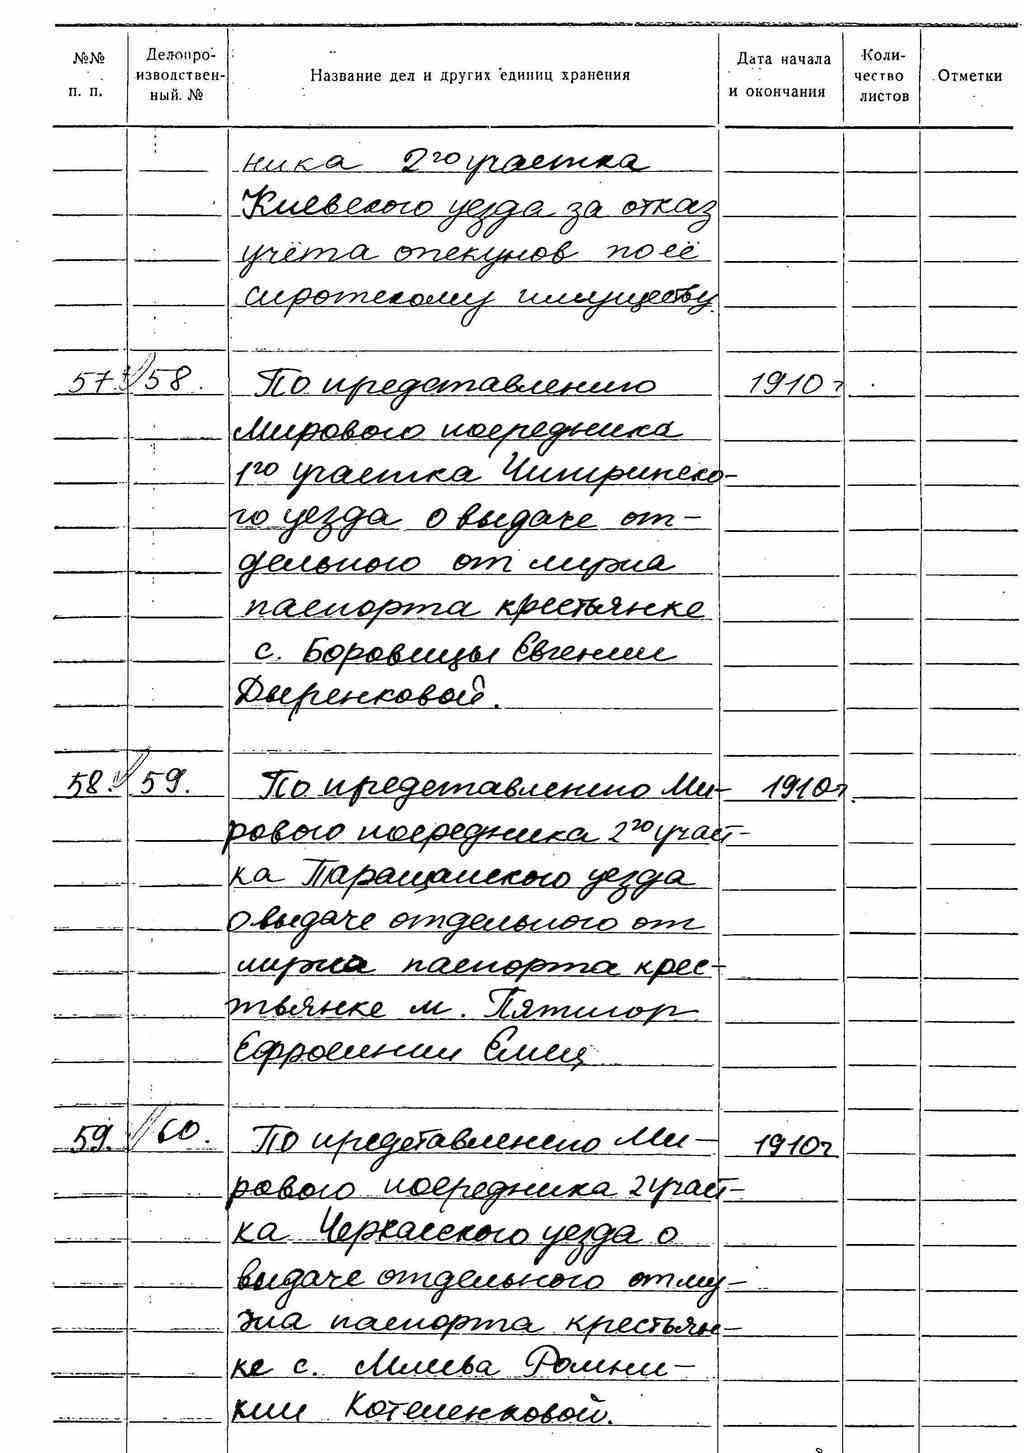 №№ п. п. Делопроизводствен-ный. № Название дел и других единиц хранения Дата начала и окончания Коли-чество листов Отметки
ника 2го участка
Киевского уезда за отказ
учёта опекунов по её
сиротскому имуществу.
57. 58. По представлению 1910 г
Мирового посредника
1го участка Чигринско-
го уезда о выдаче от-
дельного от мужа
паспорта крестьянке
с. Боровицы Евгении
Дыренковой.
58. 59. По представлению Ми- 1910г.
рового посредника 2го участ-
ка Таращанского уезда
о выдаче отдельного от
мужа паспорта крес-
тьянке м. Пятигор
Ефросинии Емец
59. 60. По представлению Ми- 1910г
рового посредника 2 участ-
ка Черкасского уезда о
выдаче отдельного от му-
жа паспорта крестьян-
ке с. Млиева
кии Котеленковой.